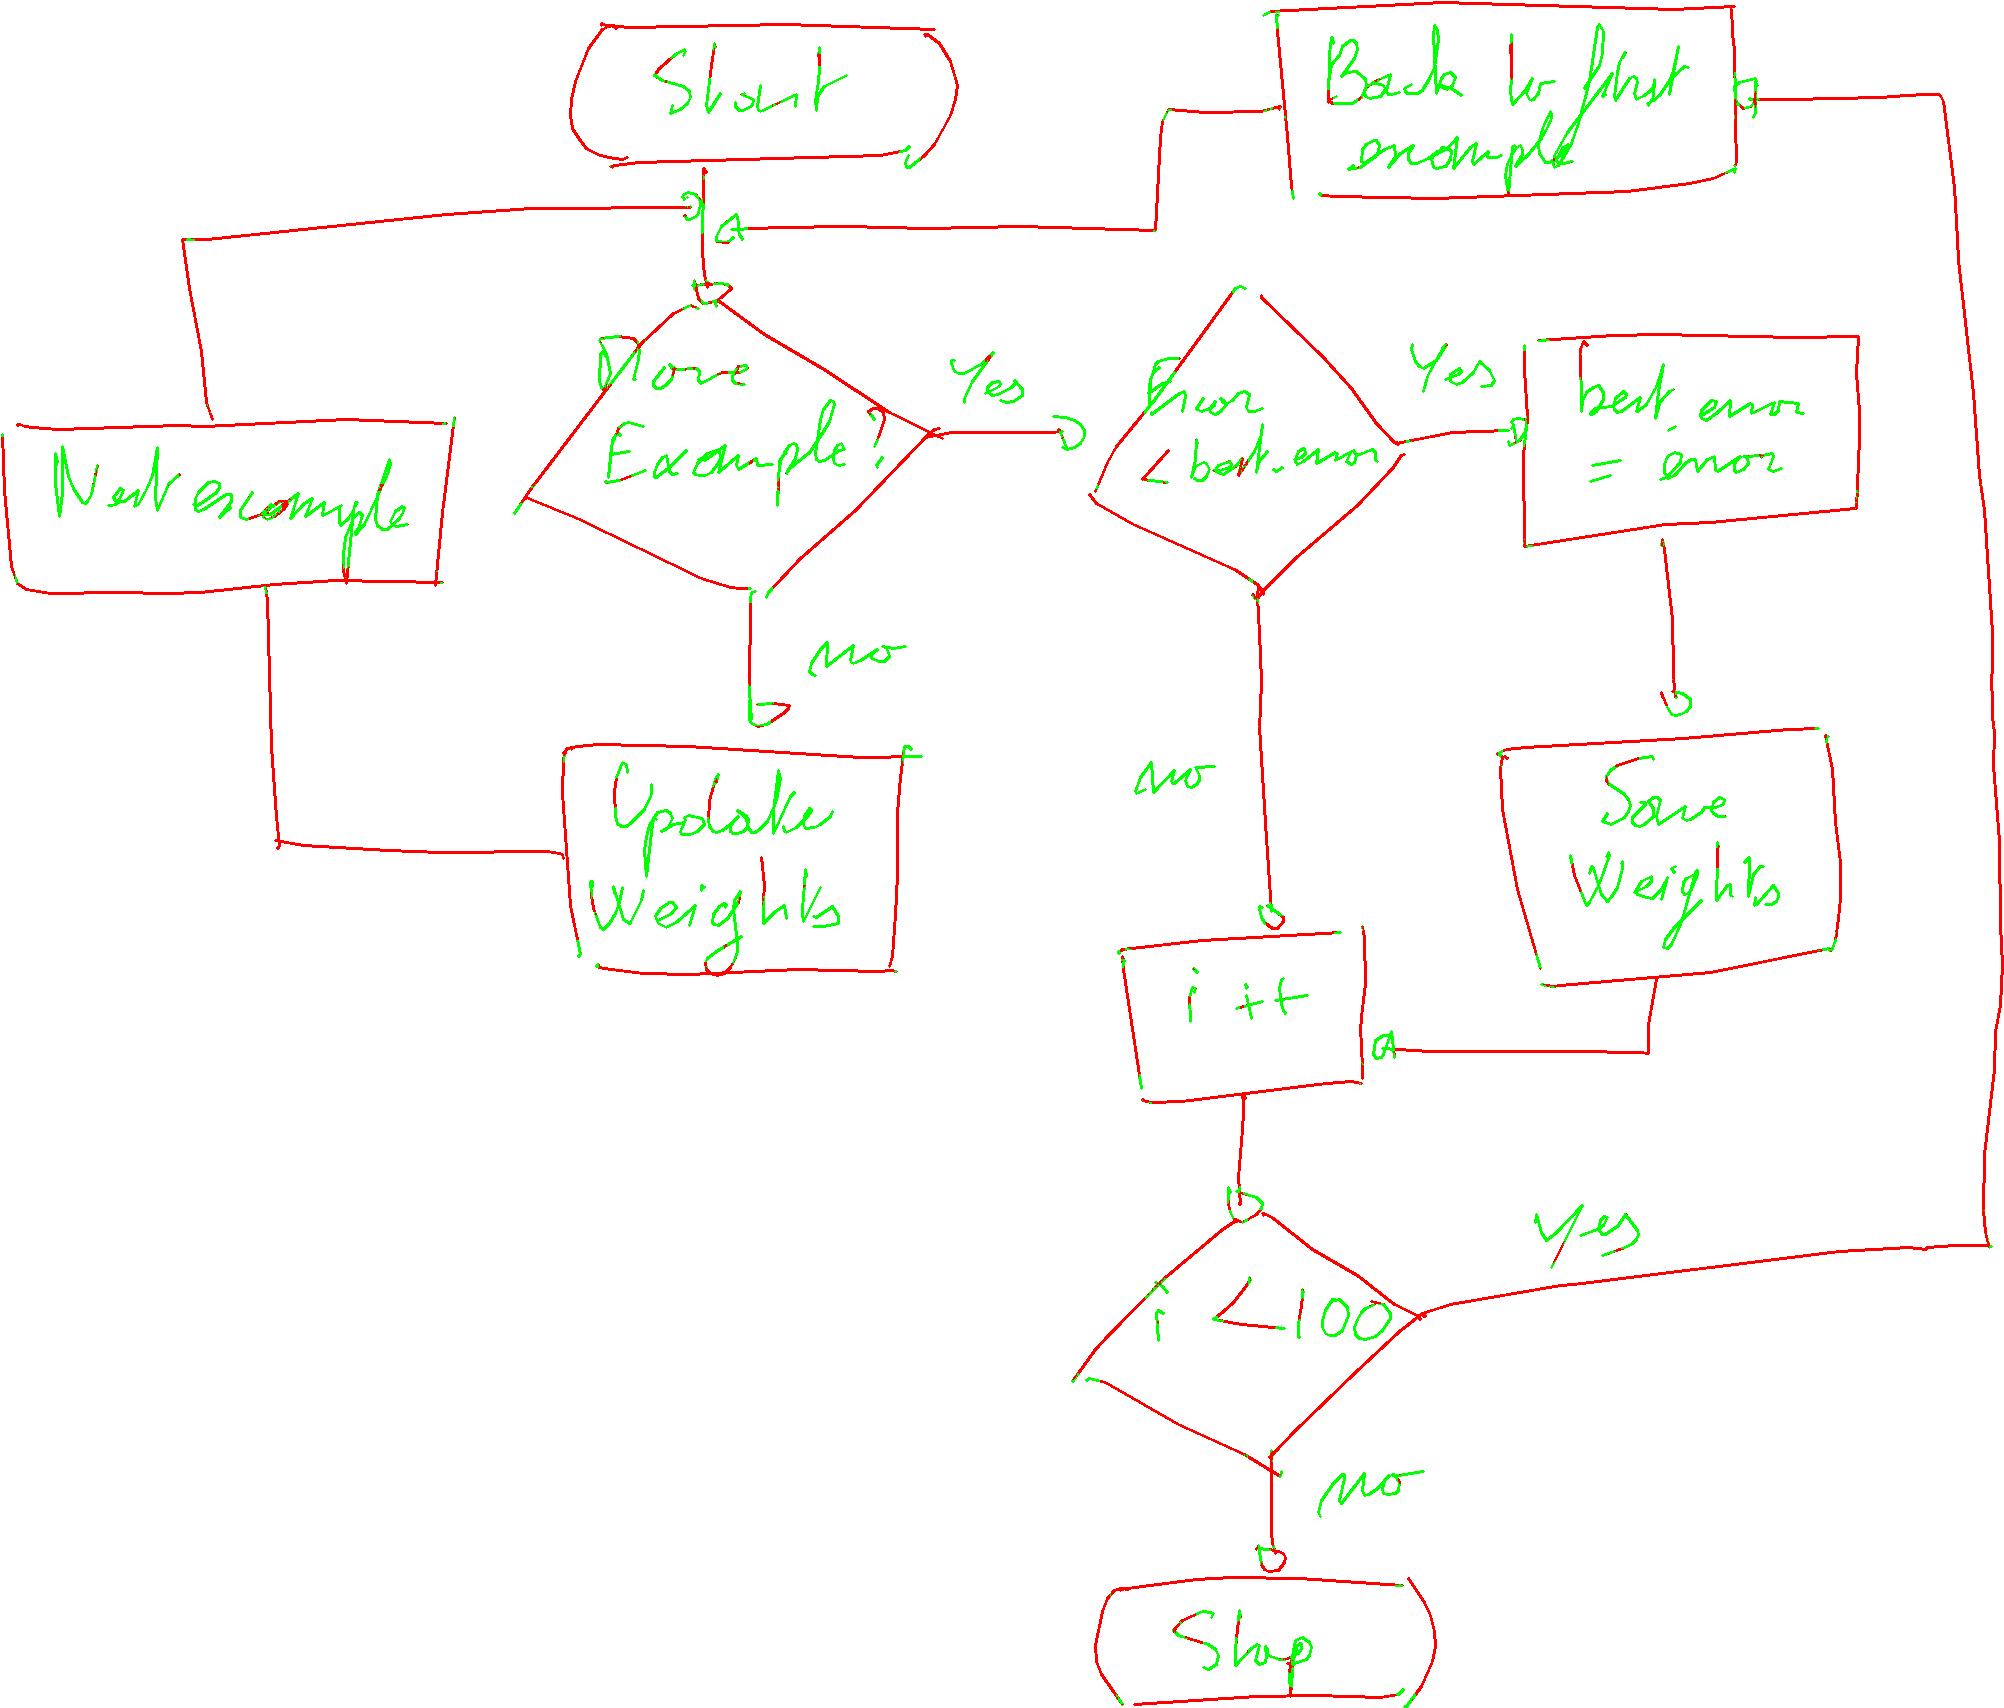 Start
Back to first
example
More
Example?
Yes
Error
< best_error
Yes
best_error
= error
Next example
no
Update
Weights
no
Save
Weights
i ++
i < 100
Yes
no
Stop